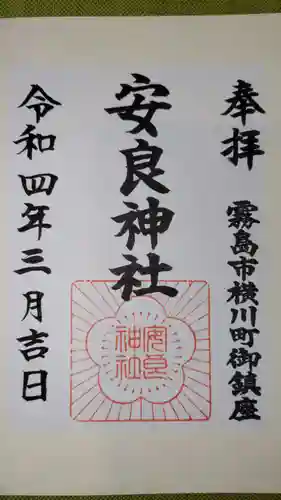 奉拝
霧島市横川町御鎮座
安良神社
安良神社
令和四年三月吉日